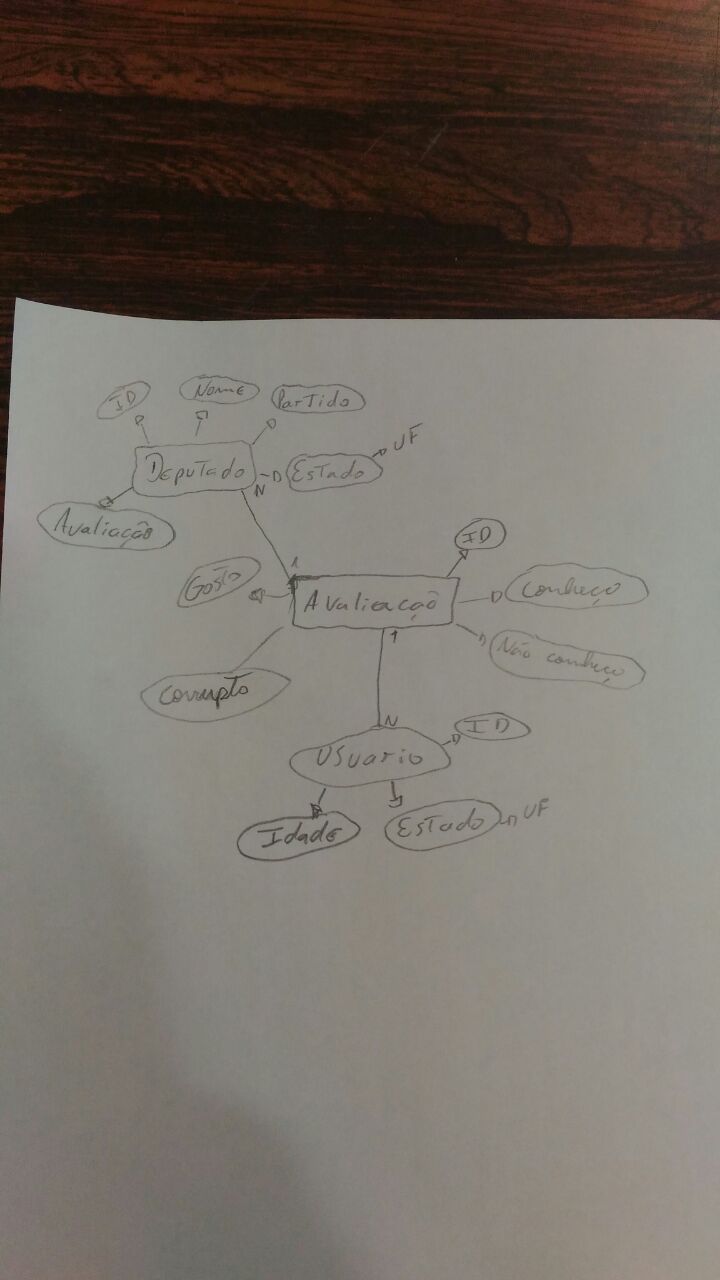 ID
Nome
Partido
Deputado
Estado
UF
N
Avaliação
1
ID
Gosto
Avaliação
Conheço
1
Não conheço
Corrupto
N
ID
Usuario
Idade
Estado
UF